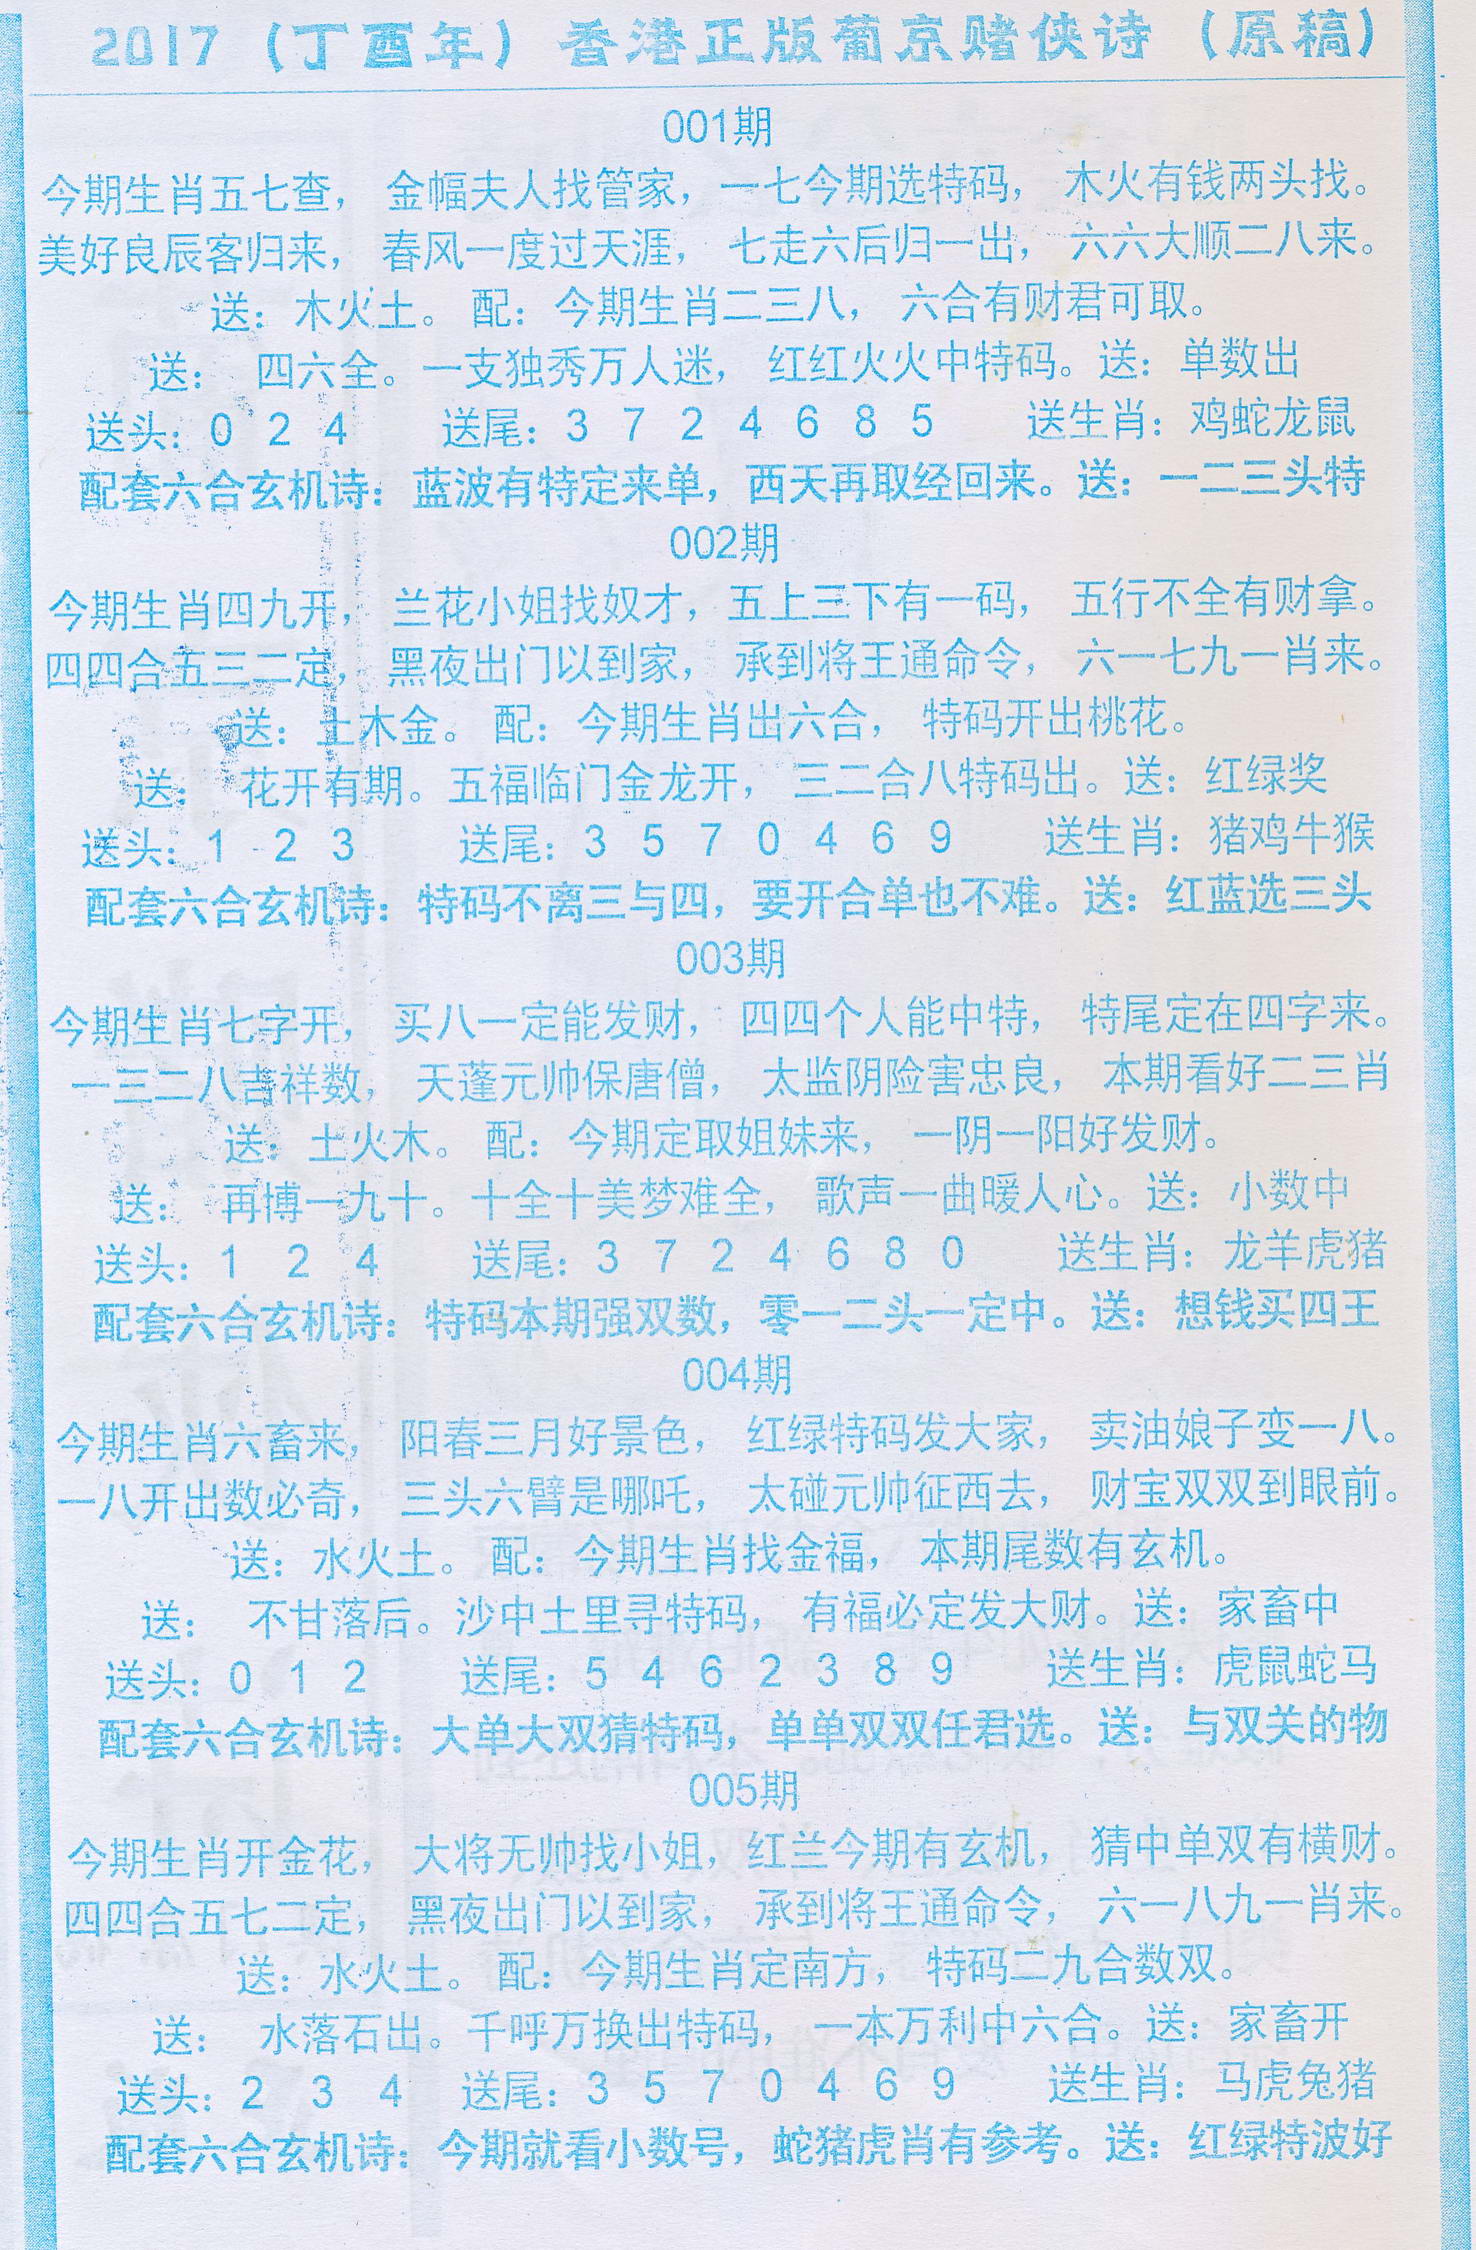 2017（丁酉年）香港正版葡京赌侠诗（原稿）
001期
今期生肖五七查， 金幅夫人找管家，一七今期选特码， 木火有钱两头找。
美好良辰客归来， 春风一度过天涯， 七走六后归一出， 六六大顺二八来。
送：木火土。 配：今期生肖二三八， 六合有财君可取。
送： 四六全。一支独秀万人迷， 红红火火中特码。送：单数出
送头：0 2 4 送尾：3 7 2 4 6 8 5 送生肖：鸡蛇龙鼠
配套六合玄机诗：蓝波有特定来单，西天再取经回来。送：一二三头特
002期
今期生肖四九开， 兰花小姐找奴才，五上三下有一码， 五行不全有财拿。
四四合五三二定， 黑夜出门以到家， 承到将王通命令， 六一七九一肖来。
送：土木金。 配：今期生肖出六合， 特码开出桃花。
送： 花开有期。五福临门金龙开， 三二合八特码出。送：红绿奖
送头：1 2 3 送尾：3 5 7 0 4 6 9 送生肖：猪鸡牛猴
配套六合玄机诗：特码不离三与四，要开合单也不难。送：红蓝选三头
003期
今期生肖七字开， 买八一定能发财， 四四个人能中特， 特尾定在四字来。
一三二八吉祥数， 天蓬元帅保唐僧， 太监阴险害忠良， 本期看好二三肖
送：土火木。 配：今期定取姐妹来， 一阴一阳好发财。
送： 再博一九十。十全十美梦难全， 歌声一曲暖人心。送：小数中
送头：1 2 4 送尾：3 7 2 4 6 8 0 送生肖：龙羊虎猪
配套六合玄机诗：特码本期强双数，零一二头一定中。送：想钱买四王
004期
今期生肖六畜来， 阳春三月好景色， 红绿特码发大家， 卖油娘子变一八。
一八开出数必奇， 三头六臂是哪吒， 太碰元帅征西去， 财宝双双到眼前。
送：水火土。 配：今期生肖找金福， 本期尾数有玄机。
送： 不甘落后。沙中土里寻特码， 有福必定发大财。送：家畜中
送头：0 1 2 送尾：5 4 6 2 3 8 9 送生肖：虎鼠蛇马
配套六合玄机诗：大单大双猜特码，单单双双任君选。送：与双关的物
005期
今期生肖开金花， 大将无帅找小姐，红兰今期有玄机， 猜中单双有横财。
四四合五七二定， 黑夜出门以到家， 承到将王通命令， 六一八九一肖来。
送：水火土。 配：今期生肖定南方， 特码二九合数双。
送： 水落石出。千呼万换出特码， 一本万利中六合。送：家畜开
送头：2 3 4 送尾：3 5 7 0 4 6 9 送生肖：马虎兔猪
配套六合玄机诗：今期就看小数号，蛇猪虎肖有参考。送：红绿特波好